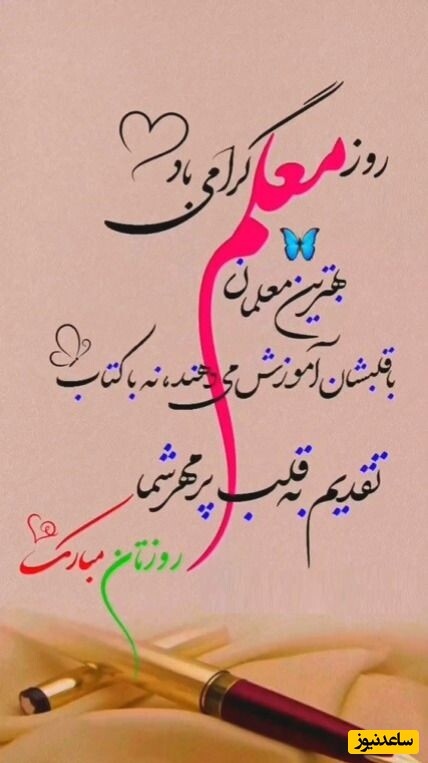 روز معلم گرامی باد
بهترین معلمان
با قلبشان آموزش می دهند، نه با کتاب
تقدیم به قلب پر مهر شما
روزتان مبارک
ساعدنیوز